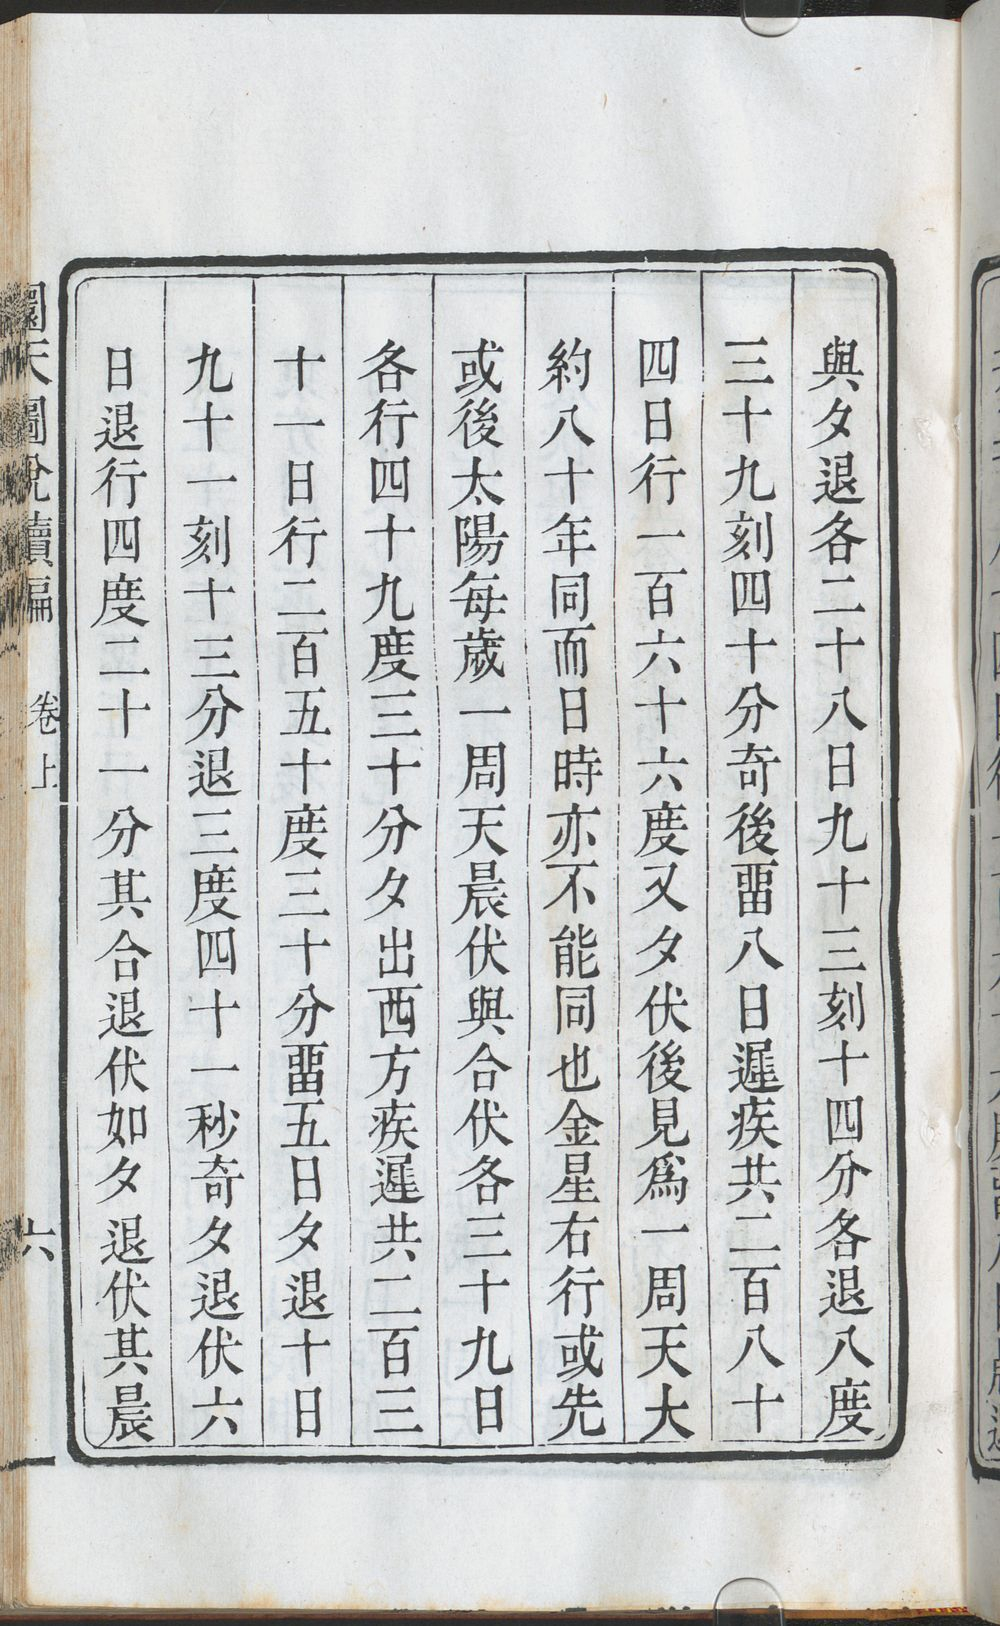 與夕退各二十八日九十三刻十四分各退八度
三十九刻四十分奇後畱八日遲疾共二百八十
四日行一百六十六度又夕伏後見爲一周天大
約八十年同而日時亦不能同也金星右行或先
或後太陽每歲一周天晨伏與合伏各三十九日
各行四十九度三十分夕出西方疾遲共二百三
十一日行二百五十度三十分畱五日夕退十日
九十一刻十三分退三度四十一秒奇夕退伏六
日退行四度二十一分其合退伏如夕退伏其晨
圜天圖說續編 卷上 六